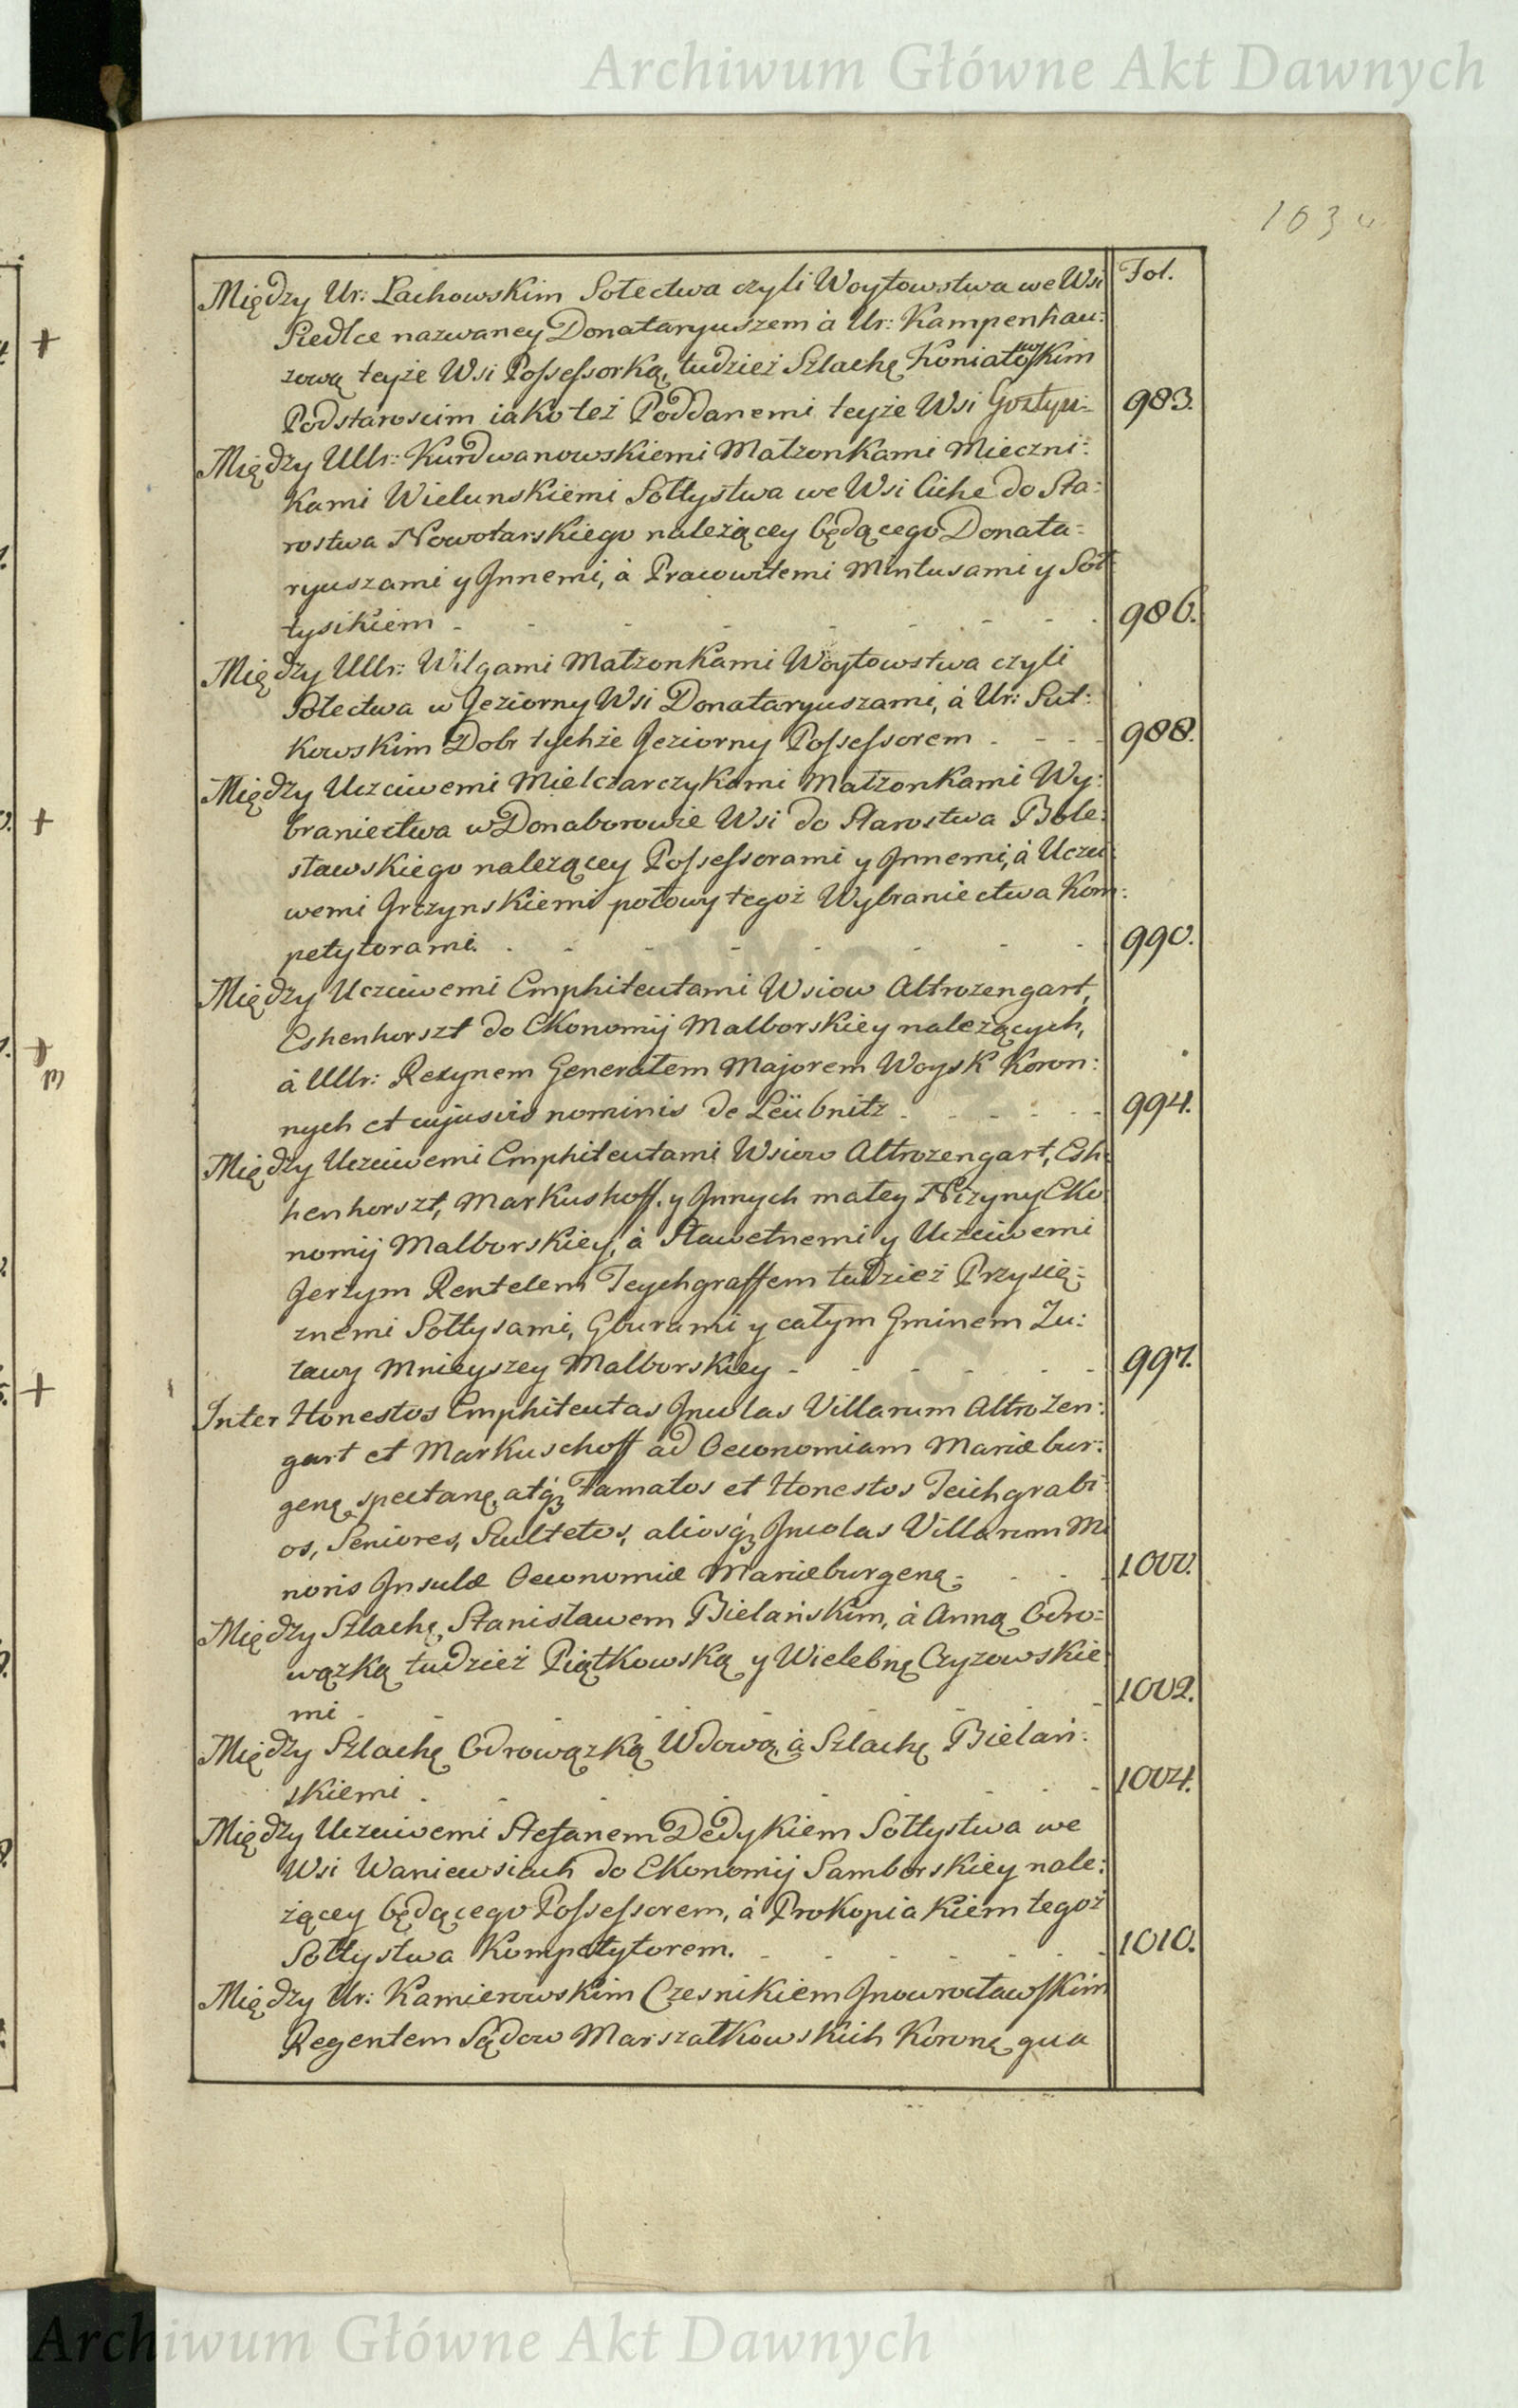 Archiwum Główne Akt Dawnych
103
Fol.
Między Ur: Lachowskim Sołectwa czyli Woytowstwa we Wsi
Siedlce nazwaney Donataryuszem à Ur: Kampenhau:
zową teyże Wsi Possessorką, tudzież Szlachę Koniatowskim
Podstaroscim iako też Poddanemi teyże Wsi 983.
Między UUr: Kurdwanowskiemi Małzonkami Mieczni:
kami Wielunskiemi Sołtystwa we Wsi Ciche do Sta:
rostwa Nowotarskiego należącey będącego Donata:
ryuszami y Jnnemi, à Pracowitemi Mintusami y Soł
tysikiem - 986.
Między UUr: Wilgami Małzonkami Woytowstwa czyli
Sołectwa w Jeziorny Wsi Donataryuszami, à Ur: Sut:
kowskim Dobr tychże Jeziorny Possessorem - 988.
Między Uczciwemi Mielczarczykami Małzonkami Wy:
braniectwa w Donaborowie Wsi do Starostwa Bole:
sławskiego nalezącey Possessorami y Jnnemi, à Uczci:
wemi Grczynskiemi połowy tegoż Wybraniectwa Kom:
petytorami. 990.
Między Uczciwemi Emphiteutami Wsiow Altrozengart,
Eshenhorszt do Ekonomij Malborskiey należących,
à UUr: Rexynem Generałem Majorem Woysk Koron:
nych et cujusvis nominis de Leübnitz - 994.
Między Uczciwemi Emphiteutami Wsiow Altrozengart, Esh:
henhorszt, Markushoff. y Jnnych małey Niżyny Eko
nomij Malborskiey, à Sławetnemi y Uczciwemi
Jerzym Rentelem Teychgraffem tudzież Przysię:
znemi Sołtysami, Gburami y całym Gminem Zu:
ławy Mnieyszey Malborskiey - 997.
Inter Honestos Emphiteutas Jncolas Villarum Altrozen:
gart et Markuschoff ad Oeconomiam Mariæbur:
genę spectanę, atqȝ Famatos et Honestos Teichgrabi
os, Seniores, Scultetos, aliosqȝ Jncolas Villarum Mi
noris Jnsulæ Oeconomiæ Mariæburgenę - 1000.
Między Szlachę. Stanisławem Bielańskim, à Anną Odro=
wązką tudzież Piątkowską y Wielebnę Czyzowskie
mi - 1002.
Między Szlachę Odrowązką Wdową, à Szlachę Bielań:
skiemi. 1004.
Między Uczciwemi Stefanem Dedykiem Sołtystwa we
Wsi Waniewsiach do Ekonomij Samborskiey nale:
żącey będącego Possessorem, à Prokopiakiem tegoż
Sołtystwa Kompetytorem. 1010.
Między Ur: Kamierowskim Czesnikiem Jnowrocławskim
Regentem Sądow Marszałkowskich Koronę qua
Archiwum Główne Akt Dawnych